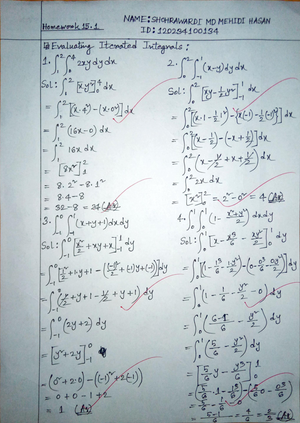 Homework 15.1
NAME: SHOHRAWARDI MD MEHIDI HASAN
ID: 120234100134
Evaluating Iterated Integrals:
1. ∫₁² ∫₀⁴ 2xy dy dx
Sol: ∫₁² [xy²]₀⁴ dx
= ∫₁² [x·4² - (x·0²)] dx
= ∫₁² (16x-0) dx
= ∫₁² 16x dx
= [8x²]₁²
= 8·2² - 8·1²
= 8·4 - 8
= 32-8 = 24 (As)
2. ∫₀² ∫₋₁¹ (x-y) dy dx
Sol: ∫₀² [xy - ½y²]₋₁¹ dx
= ∫₀² [(x·1 - ½·1²) - (x(-1) - ½(-1)²)] dx
= ∫₀² [(x-½) - (-x+½)] dx
= ∫₀² (x-½+x+½) dx
= ∫₀² 2x dx
= [x²]₀² = 2²-0² = 4 (As)
3. ∫₋₁⁰ ∫₋₁¹ (x+y+1) dx dy
Sol: ∫₋₁⁰ [x²/2 + xy + x]₋₁¹ dy
= ∫₋₁⁰ (2y+2) dy
= [y²+2y]₋₁⁰
= (0²+2·0) - ((-1)²+2(-1))
= 0+0-1+2
= 1 (As)
4. ∫₀¹ ∫₀¹ (1 - (x²+y²)/2) dx dy
Sol: ∫₀¹ [x - x³/6 - xy²/2]₀¹ dy
= ∫₀¹ (1 - 1/6 - y²/2 - 0) dy
= ∫₀¹ (6-1/6 - y²/2) dy
= ∫₀¹ (5/6 - y²/2) dy